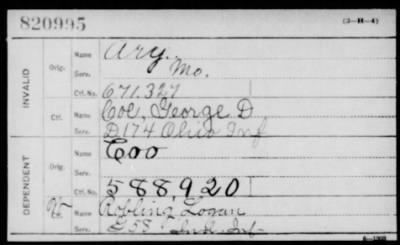 820995
(3-H-4)
INVALID
Orig.
Name Ary.
Serv. Mo.
Ctf. No. 671.327
Ctf.
Name Coe, George D
Serv. D 174 Ohio Inf
DEPENDENT
Orig.
Name Coo
Serv.
Ctf. No. 588920
Ctf.
Name Robling Logan
Serv. E 58 Ind. Inf